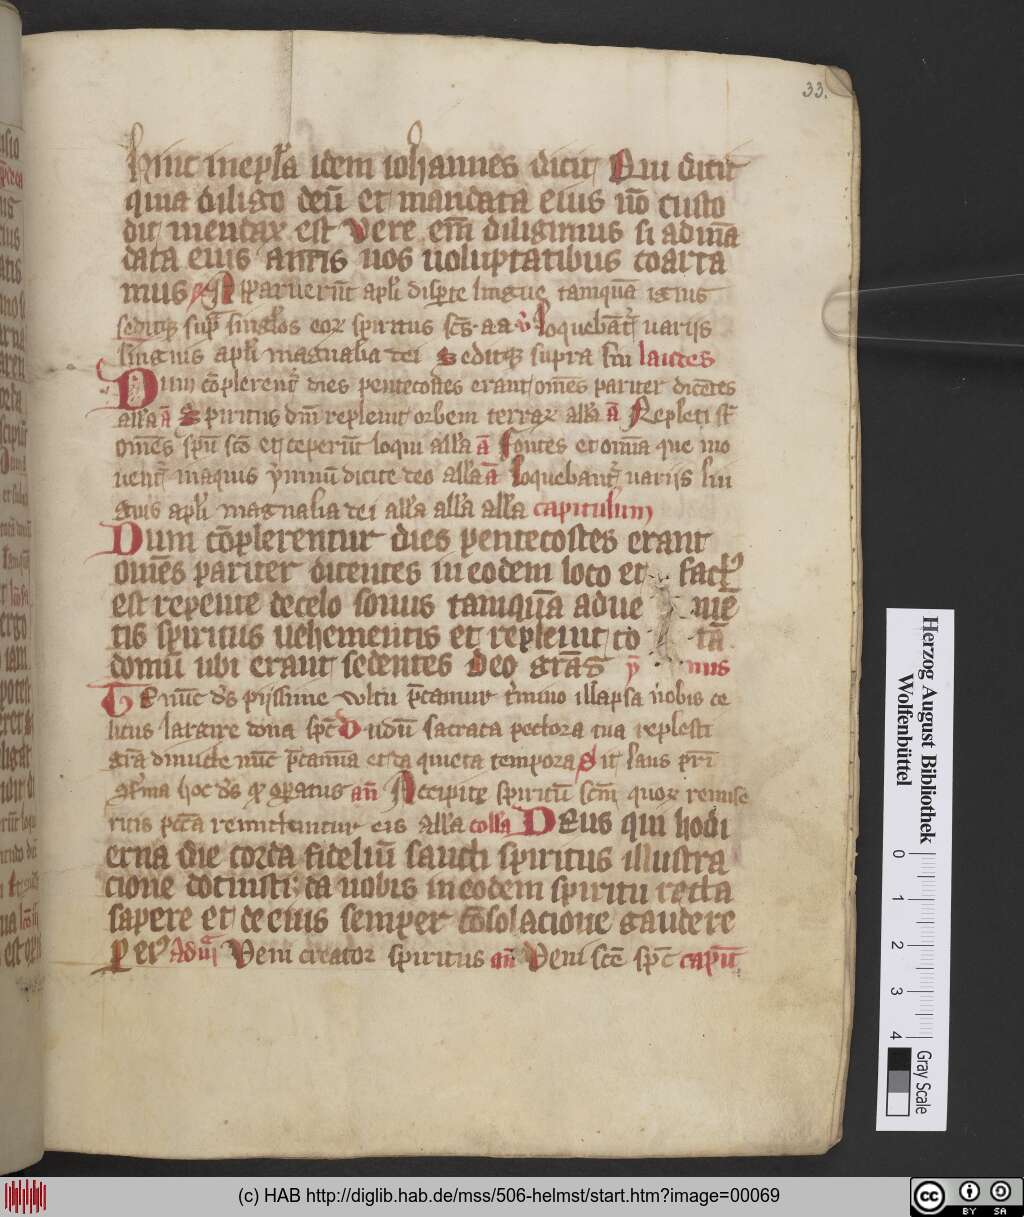 33.
hinc in epl̄a idem iohannes dicit Qui dicit
quia diligo deū et mandata eius nō custo
dit mendax est Vere em̄ diligimus si ad mā
data eius a nr̄is nos uoluptatibus coarta
mus ℟ Apparuerūt apl̄i disp̄te lingue tamquā ignis
seditq; supᵃ singl̄os eoꝝ spiritus scs̄ aa ℣ Loquebāt᷑ uariis
linguis apl̄i magnalia dei Seditq; supra sīn laudes
Dum cōplerent᷑ dies pentecostes erant om̄es pariter dicētes
all̄a an̄ Spiritus dn̄i repleuit orbem terraꝝ all̄a an̄ Repleti st̄
om̄es spū scō et ceperūt loqui all̄a an̄ Fontes et om̄ia que mo
uent᷑ in aquis ymnū dicite deo all̄a an̄ Loquebant᷑ uariis lin
guis apl̄i magnalia dei all̄a all̄a all̄a capitulum
Dum cōplerentur dies pentecostes erant
om̄es pariter dicentes in eodem loco et fact᷒
est repente de celo sonus tamquā adue nīe
tis spiritus uehementis et repleuit to tā
domū ubi erant sedentes Deo grās ymnus
Te nūc ds̄ piissime vultu p̄camur c̄nuo illapsa nobis ce
litus largire dona spc̄ Dudū sacrata pectora tua replesti
grā dimitte nūc p̄camīa et da quieta tempora Sit laus pr̄i
hoc ds̄ an̄ Accipite spiritū scm̄ quoꝝ remise
ritis pcc̄a remittuntur eis all̄a coll̄a Deus qui hodi
erna die corda fidelium sancti spiritus illustra
cione docuisti da nobis in eodem spiritu recta
sapere et de eius semper cōsolacione gaudere
Per Veni creator spiritus an̄ Veni scē spc̄ capitū
Herzog August Bibliothek
Wolfenbüttel
0 1 2 3 4
Gray Scale
(c) HAB http://diglib.hab.de/mss/506-helmst/start.htm?image=00069
cc BY SA